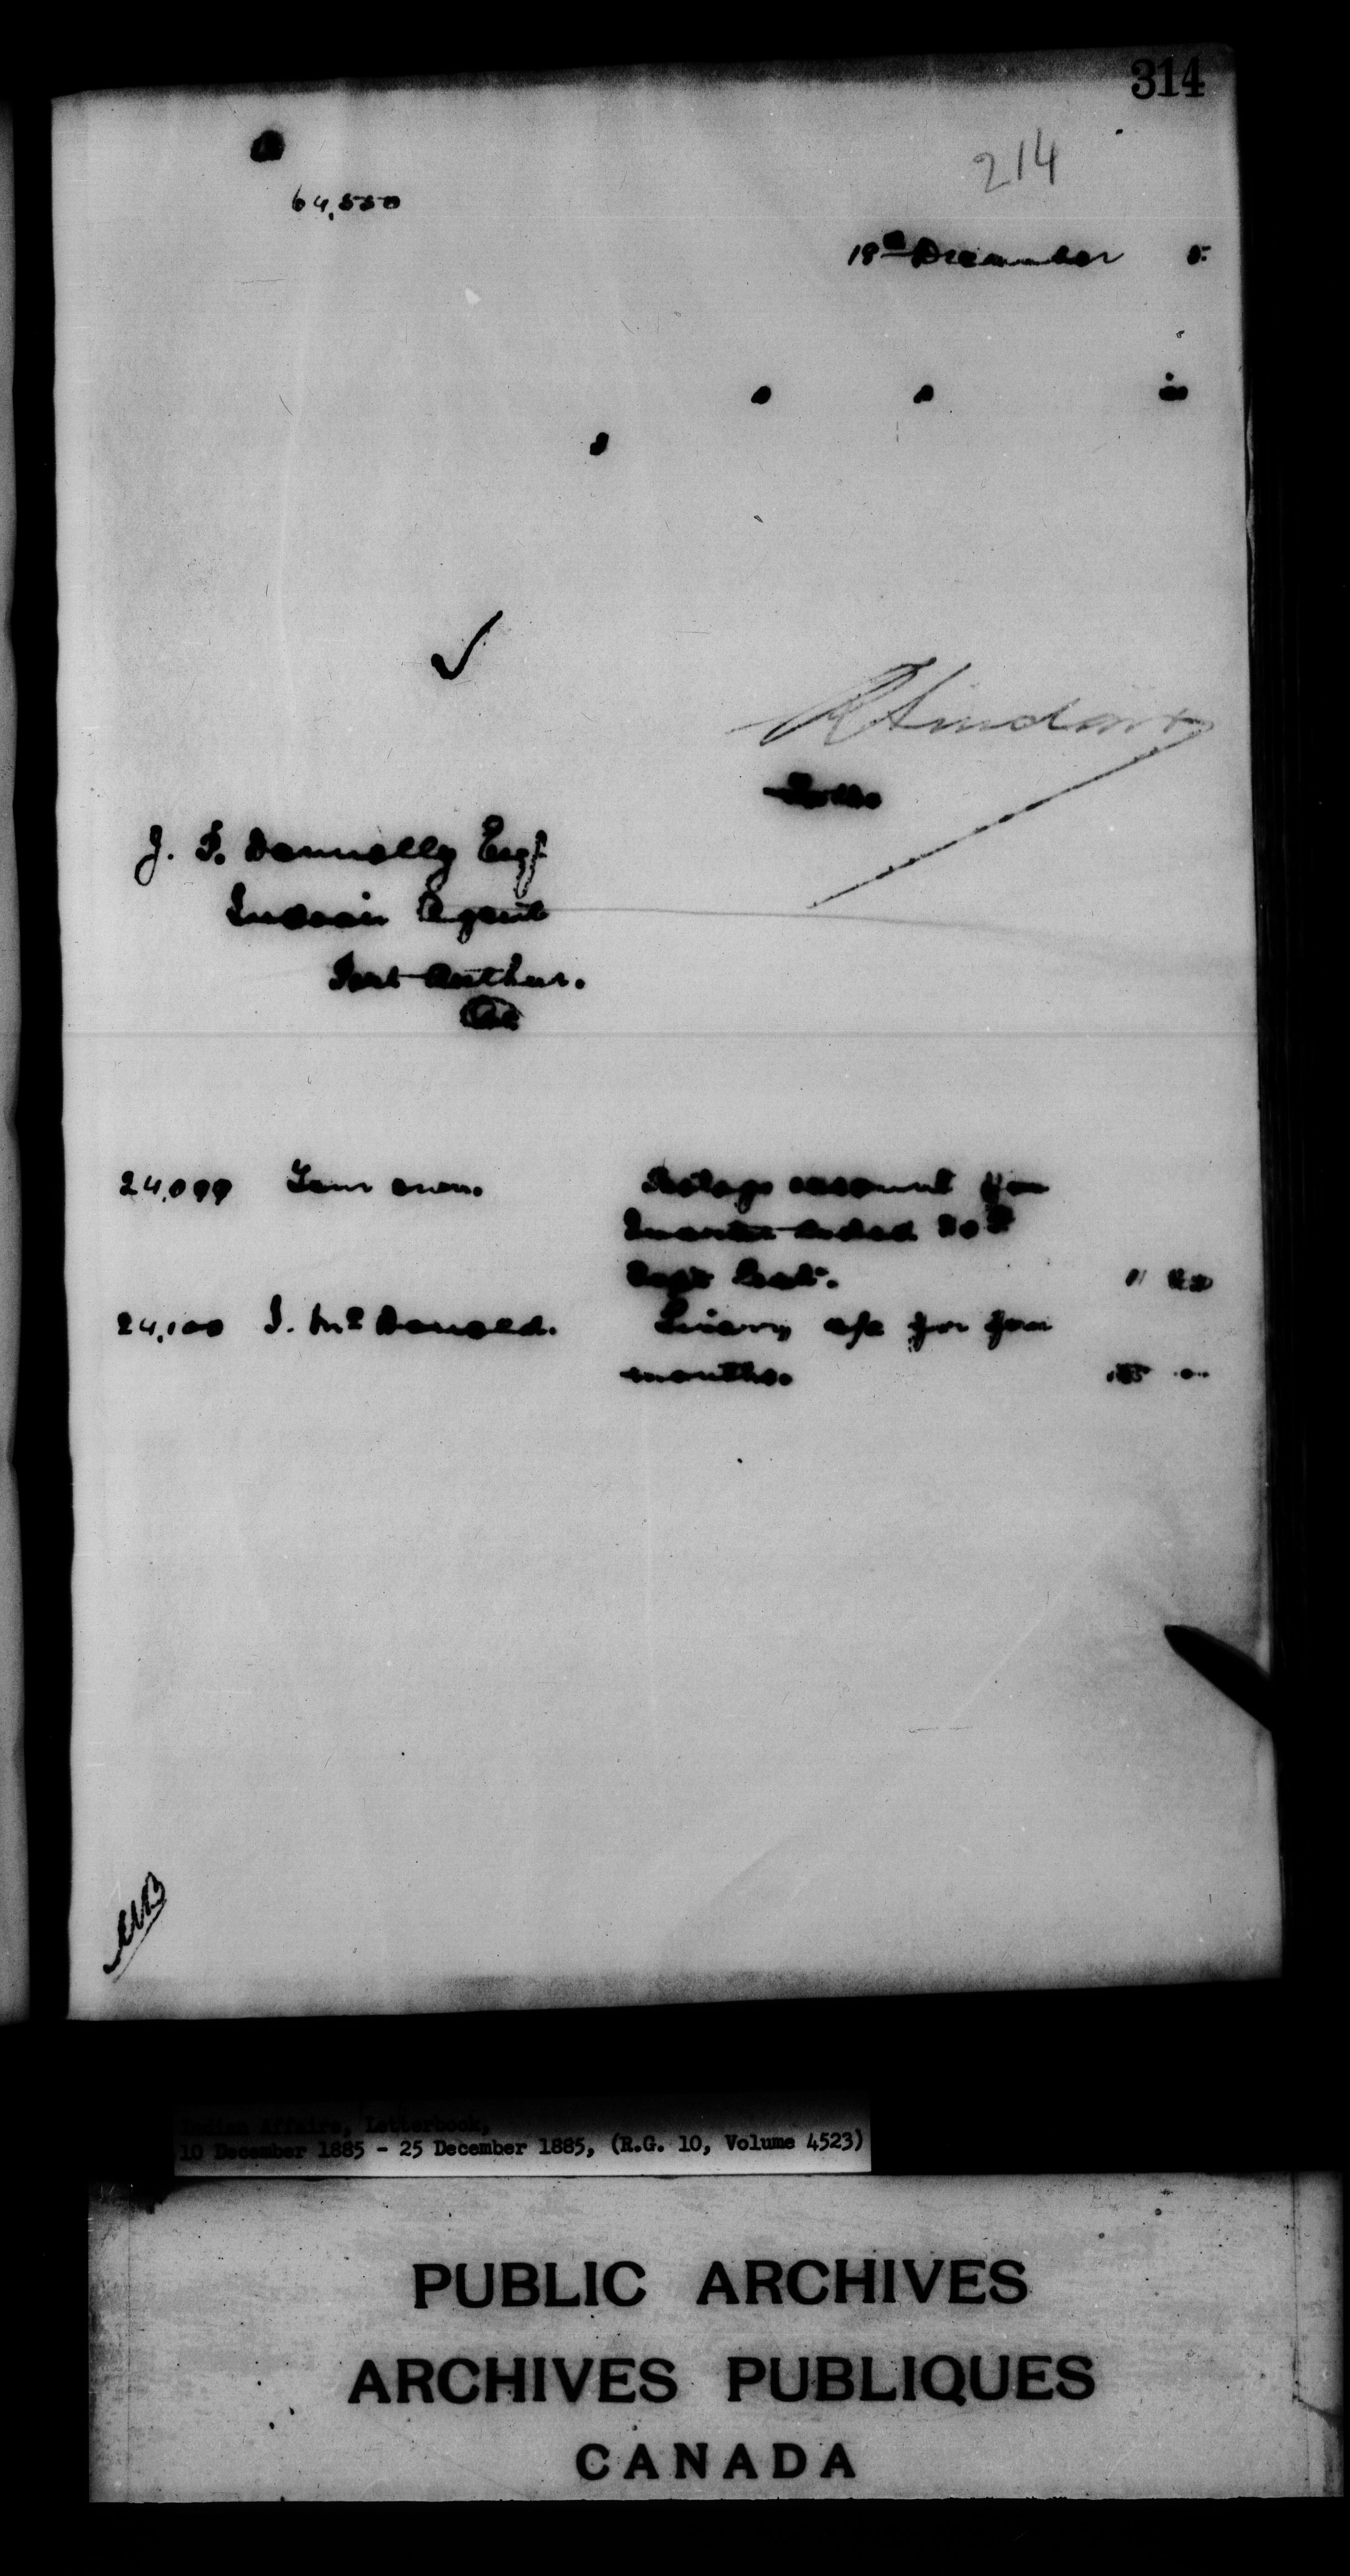 314
214
64,550
18th December 5
s
s s in
R Sinclair
J. P. Donnelly Esqr
Indian Agent
Port Arthur.
24,099 Your own. Postage account for
quarter ended 30th
Sept last. 11
24,100 J. McDonald. Livery a/c for four
months.
Indian Affairs, Letterbook,
10 December 1885 - 25 December 1885, (R.G. 10, Volume 4523)
PUBLIC ARCHIVES
ARCHIVES PUBLIQUES
CANADA